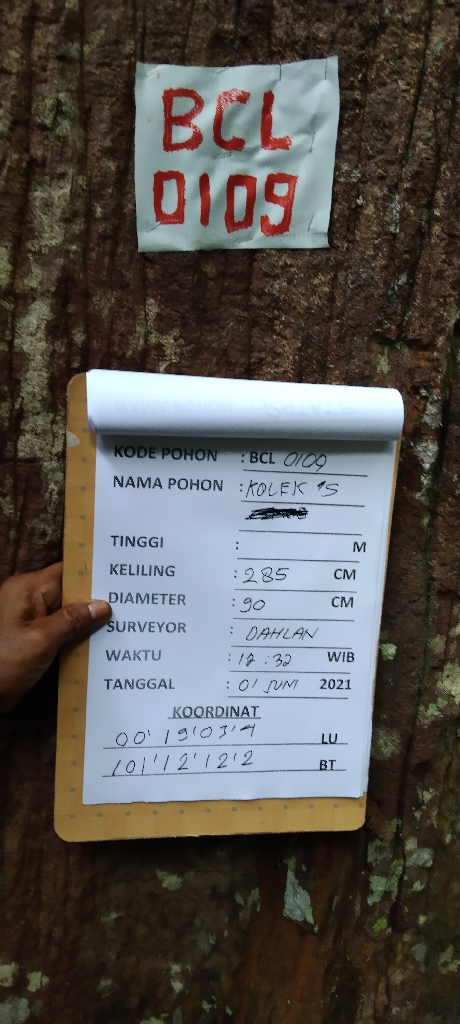 BCL
0109
KODE POHON : BCL 0109
NAMA POHON : KOLEK 'S
TINGGI : M
KELILING : 285 CM
DIAMETER : 90 CM
SURVEYOR : DAHLAN
WAKTU : 12 : 32 WIB
TANGGAL : 01 JUNI 2021
KOORDINAT
00' 19' 03' 4 LU
101' 12' 12' 2 BT